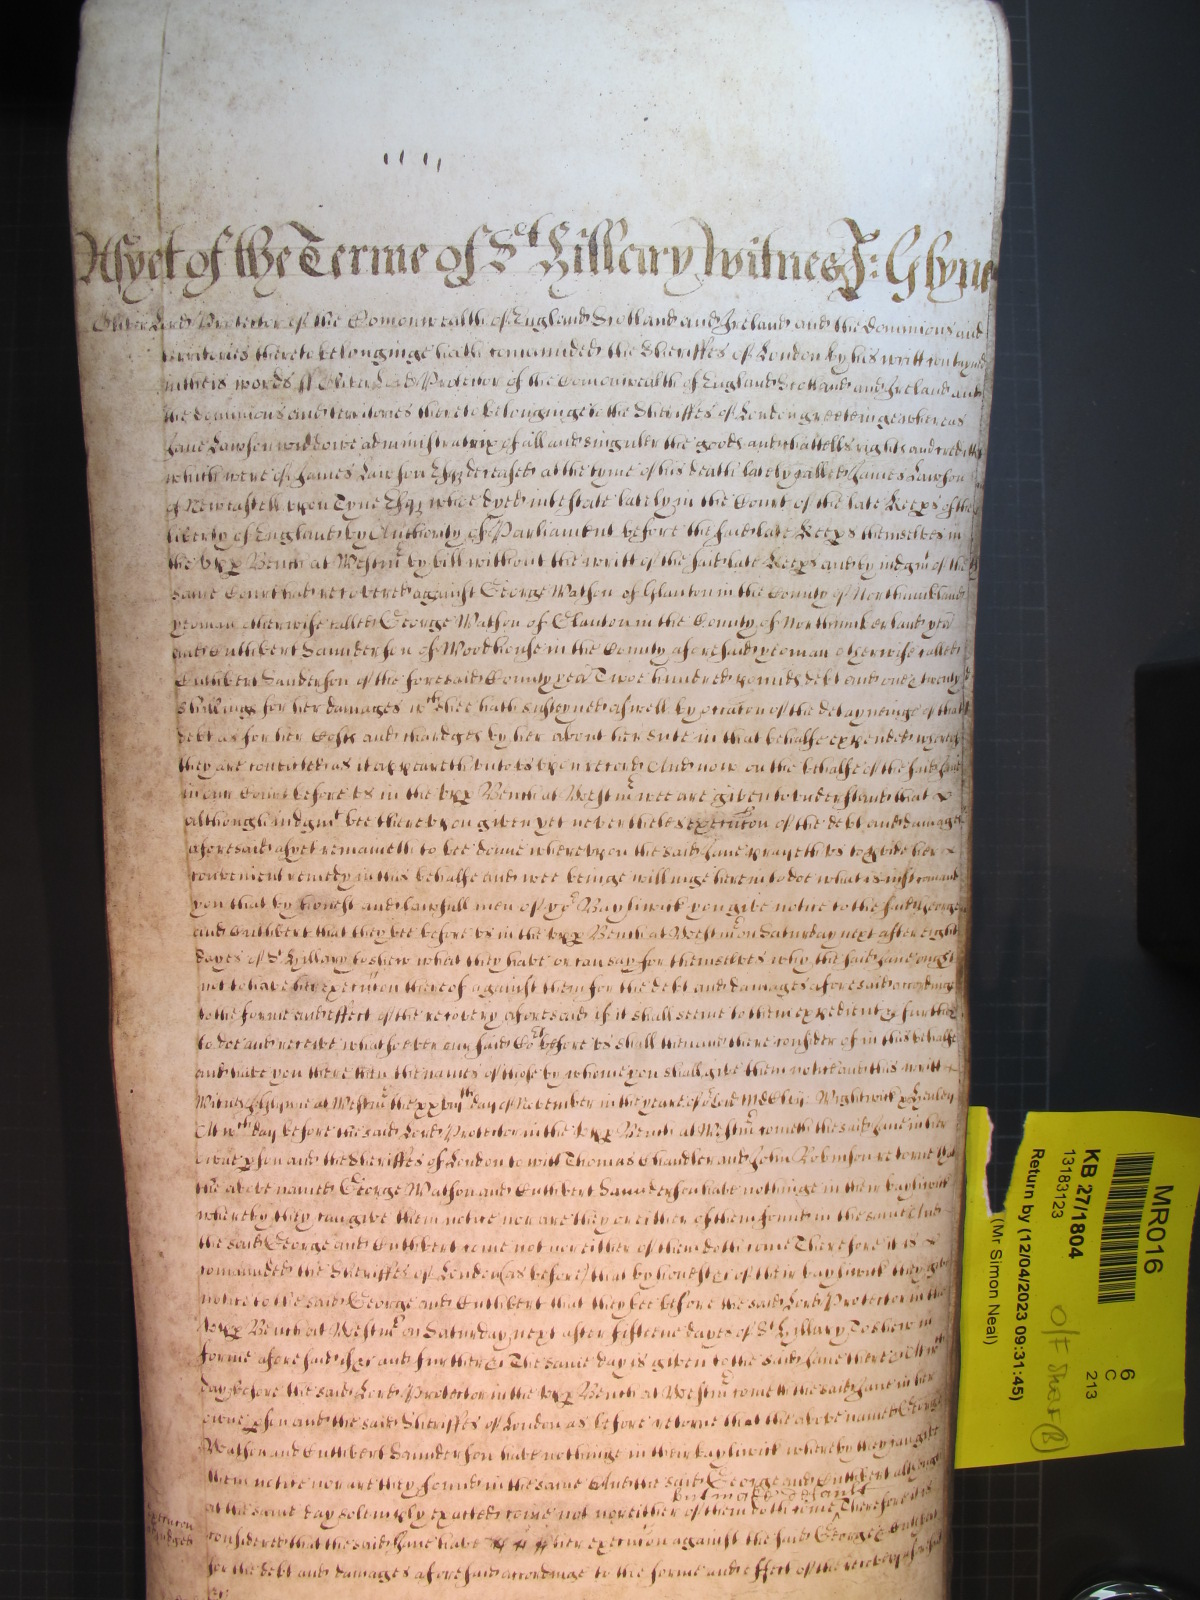 Asyet of the Terme of St Hillary Witnes J: Glynne
Oliver Lord Protector of the Comonwealth of England Scotland and Ireland and the Dominions and
territories thereto belonginge hath comanded the Sheriffes of London by his writt contayned
in theis words ss Oliver Lord Protector of the Comonwealth of England Scotland and Ireland and
the Dominions and territories thereto belonginge to the Sheriffes of London greetinge whereas
Jane Lawson widdowe administratrix of all and singuler the goods and chattells rights and creditts
which were of James Lawson Esqr deceased at the tyme of his death lately called James Lawson
of Newcastell upon Tyne Esqr whoe dyed intestate lately in the Court of the late Keeps of the
liberty of England by Authority of Parliament before the said late Keeps themselves in
the upp Bench at Westmr by bill without the writt of the said late Keeps and by iudgmt of the
same Court had recovered against George Watson of Glanton in the County of Northumbland
yeoman otherwise called George Watson of Glanton in the County of Northumberland yeo
and Cuthbert Saunderson of Woodhouse in the County aforesaid yeoman otherwise called
Cuthbert Sanderson of the foresaid County yeo Twoe hundred pounds debt and one & twenty
shillings for her damages wch shee hath susteyned aswell by occaion of the detayneinge of that
debt as for her Costs and chardges by her about her suite in that behalfe expended whereof
they are convicted as it appeareth unto us upon record And now on the behalfe of the said Jane
in our Court before us in the upp Bench at Westmr wee are given to understand that
although iudgmt bee thereupon given yet neverthelesse execution of the debt and damages
aforesaid asyet remaineth to bee donne whereupon the said Jane prayeth us to provide her
convenient remedy in this behalfe and wee beinge willinge herein to doe what is iust comand
you that by honest and lawfull men of yor Baylywick you give notice to the said George
and Cuthbert that they bee before us in the upp Bench at Westmr on Saturday next after eight
dayes of St Hillary to shew what they have or can say for themselves why the said Jane ought
not to have her execution thereof against them for the debt and damages aforesaid accordinge
to the forme and effect of the recovery aforesaid if it shall seeme to them expedient & further
to doe and receive whatsoever our said Cort before us shall then and there consider of in this behalfe
and have you there then the names of those by whome you shall give them notice and this writt
Witnes J Glynne at Westmr the xxviijth day of November in the yeare of or Lord MDClvij: Wightwick &
At wch day before the said Lord Protector in the upp Bench at Westmr cometh the said Jane in her
owne pson and the Sheriffes of London to witt Thomas Chandler and John Robinson retorne that
the above named George Watson and Cuthbert Saunderson have nothinge in their baylywick
whereby they can give them notice nor are they or either of them found in the same And
the said George and Cuthbert come not nor either of them doth come Therefore it is
comanded the Sheriffes of London (as before) that by honest &c of their baylywick they give
notice to the said George and Cuthbert that they bee before the said Lord Protector in the
upp Bench at Westmr on Saturday next after fifteene dayes of St Hillary To shew in
forme aforesaid &c and further &c The same day is given to the said Jane there &c At wch
day before the said Lord Protector in the upp Bench at Westmr cometh the said Jane in her
owne pson and the said Sheriffes of London as before retorne that the above named George
Watson and Cuthbert Saunderson have nothinge in their baylywick whereby they can give
them notice nor are they found in the same And the said George and Cuthbert although
at the same day solemnly exacted come not nor either of them doth come but make default Therefore it is
considered that the said Jane have her execution against the said George & Cuthbert
for the debt and damages aforesaid accordinge to the forme and effect of the recovery aforesaid
&c:
MR016
KB 27/1804
13183123
Return by (12/04/2023 09:31:45)
(Mr Simon Neal)
6
C
213